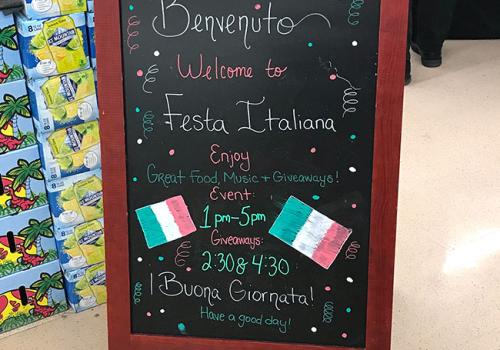 Benvenuto
Welcome to
Festa Italiana
Enjoy
Great Food, Music + Giveaways!
Event:
1pm-5pm
Giveaways:
2:30 & 4:30
¡Buona Giornata!
Have a good day!